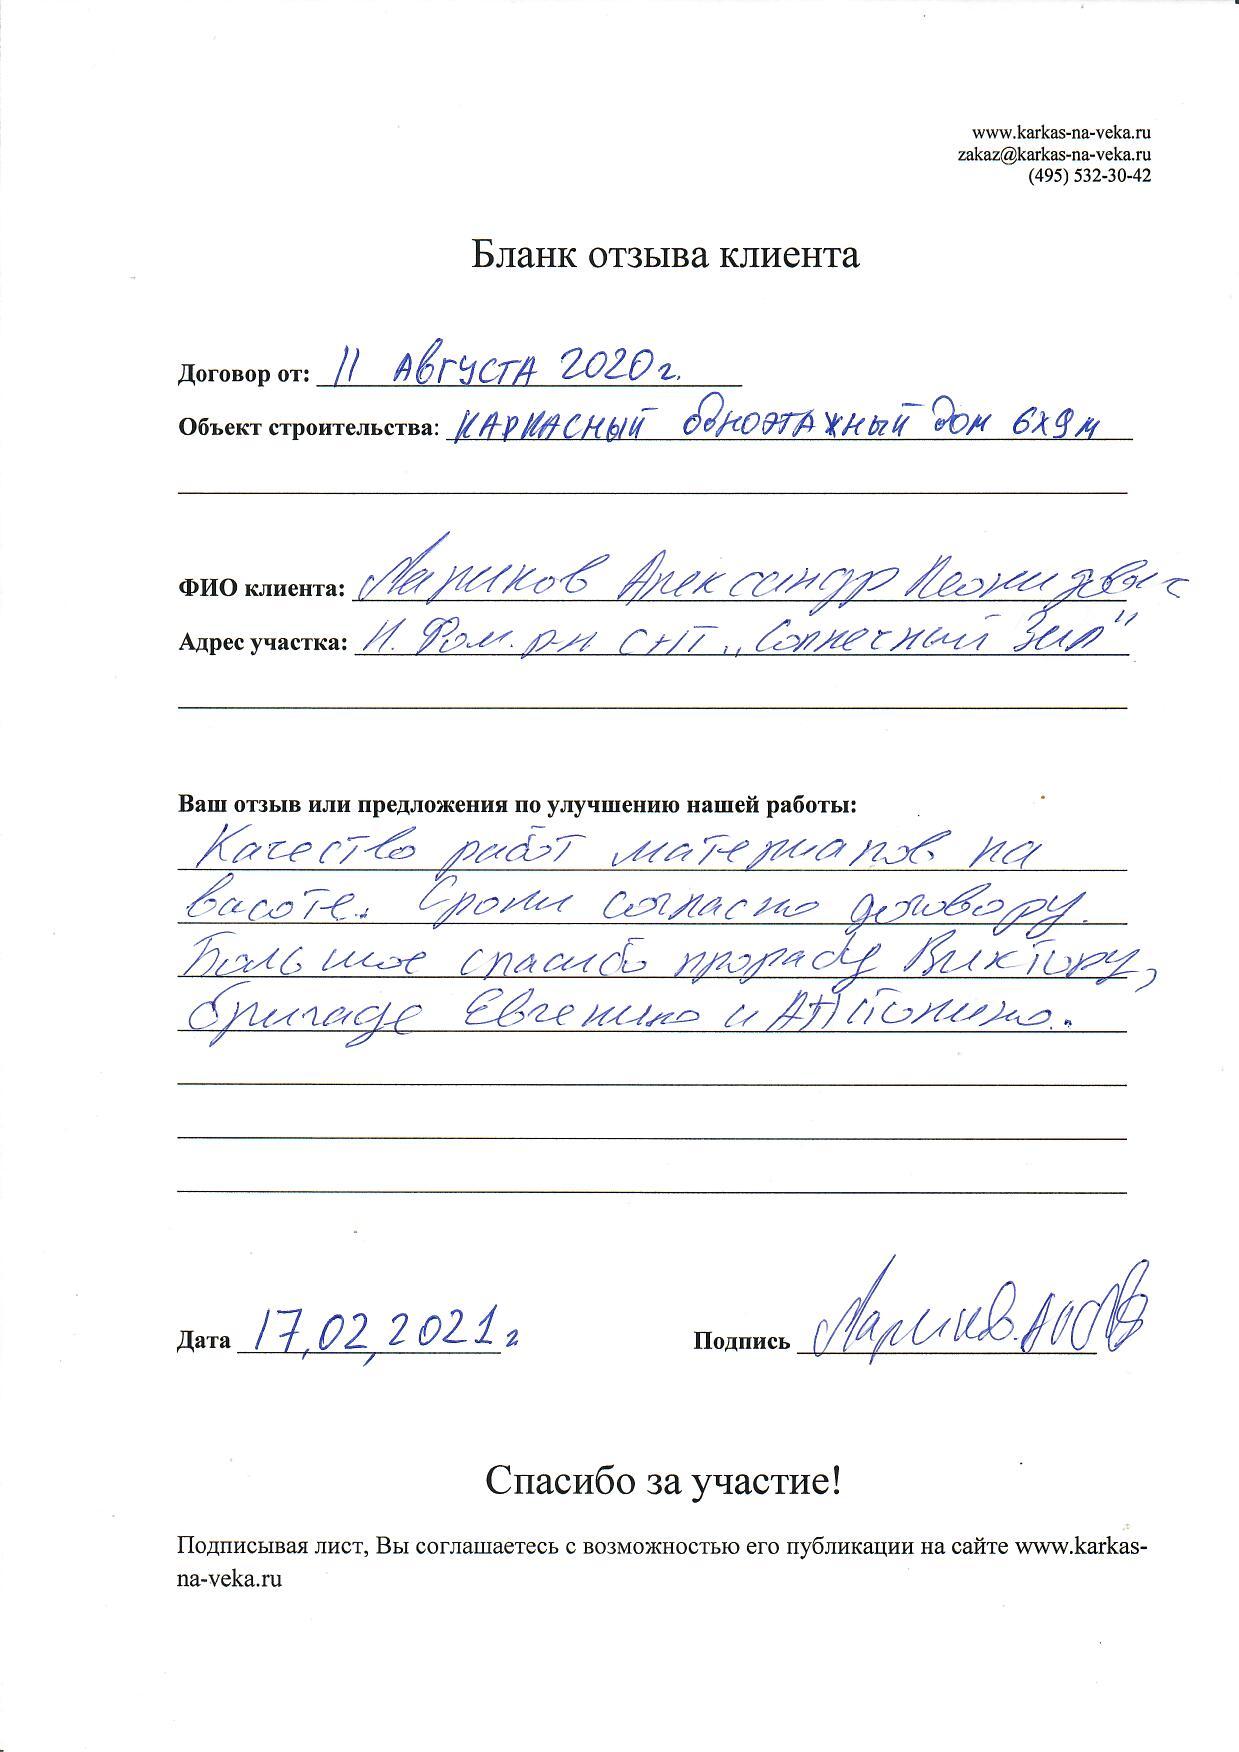 www.karkas-na-veka.ru
zakaz@karkas-na-veka.ru
(495) 532-30-42
Бланк отзыва клиента
Договор от: 11 Августа 2020 г.
Объект строительства: КАРКАСНЫЙ одноэтажный дом 6х9м
ФИО клиента: Лариков Александр Леонидович
Адрес участка: Н. Фом. р-н СНТ „Солнечный Зил"
Ваш отзыв или предложения по улучшению нашей работы:
Качество работ материалов на
васоте. Сроки согласно договору.
Большое спасибо прорабу Виктору,
бригаде Евгению и
Дата 17,02,2021 г
Подпись Лариков.
Спасибо за участие!
Подписывая лист, Вы соглашаетесь с возможностью его публикации на сайте www.karkas-
na-veka.ru